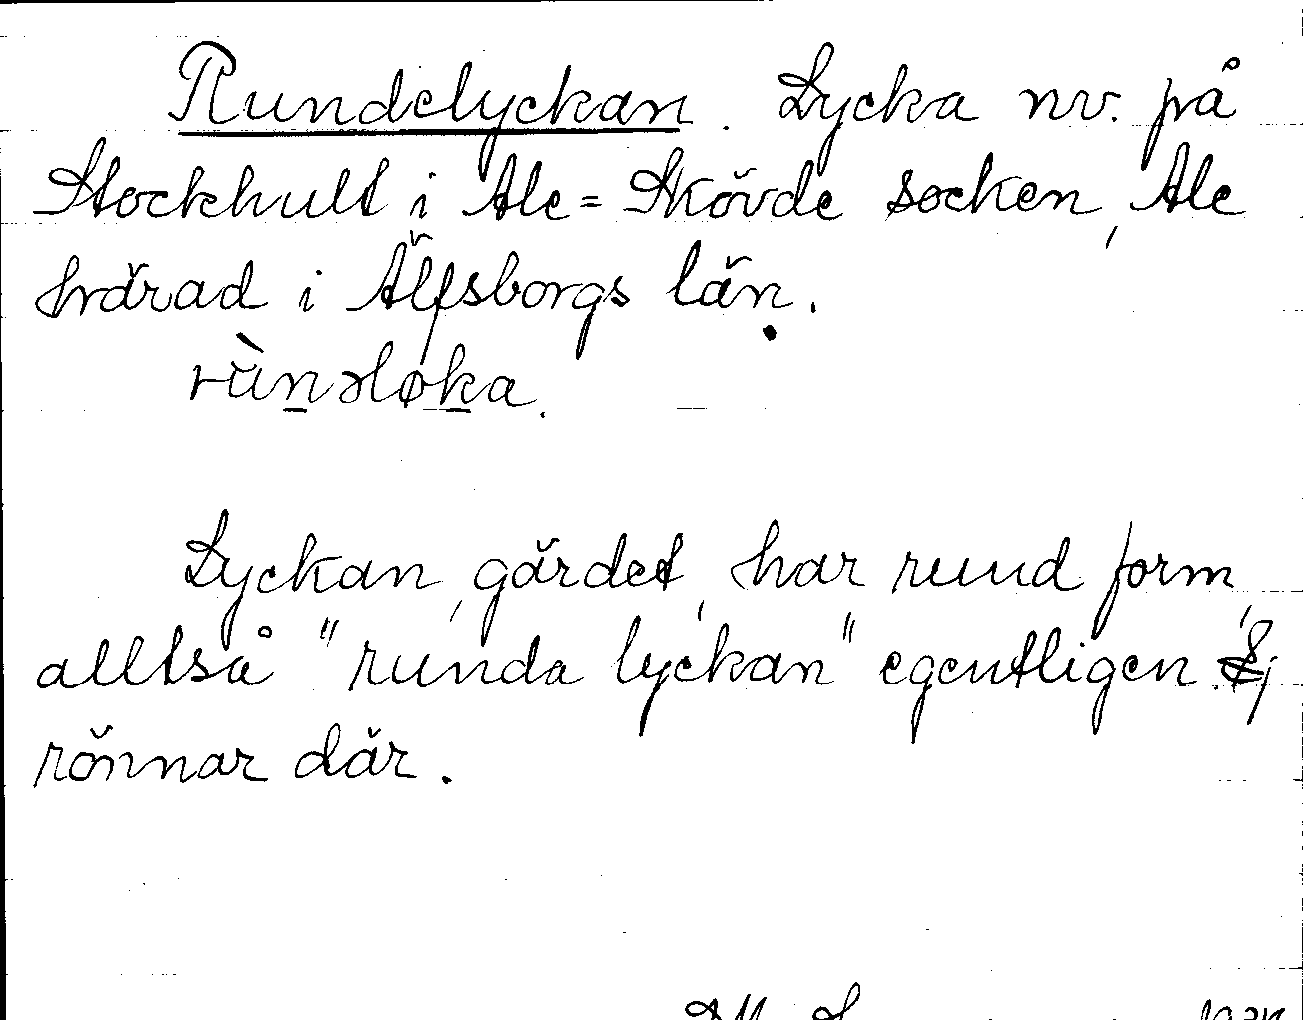 Rundelyckan. Lycka nv. på
Stockhult i Ale=Skövde socken, Ale
härad i Älfsborgs län.
rùnəløka.
Lyckan, gärdet, har rund form,
alltså "runda lyckan" egentligen. Ej
rönnar där.